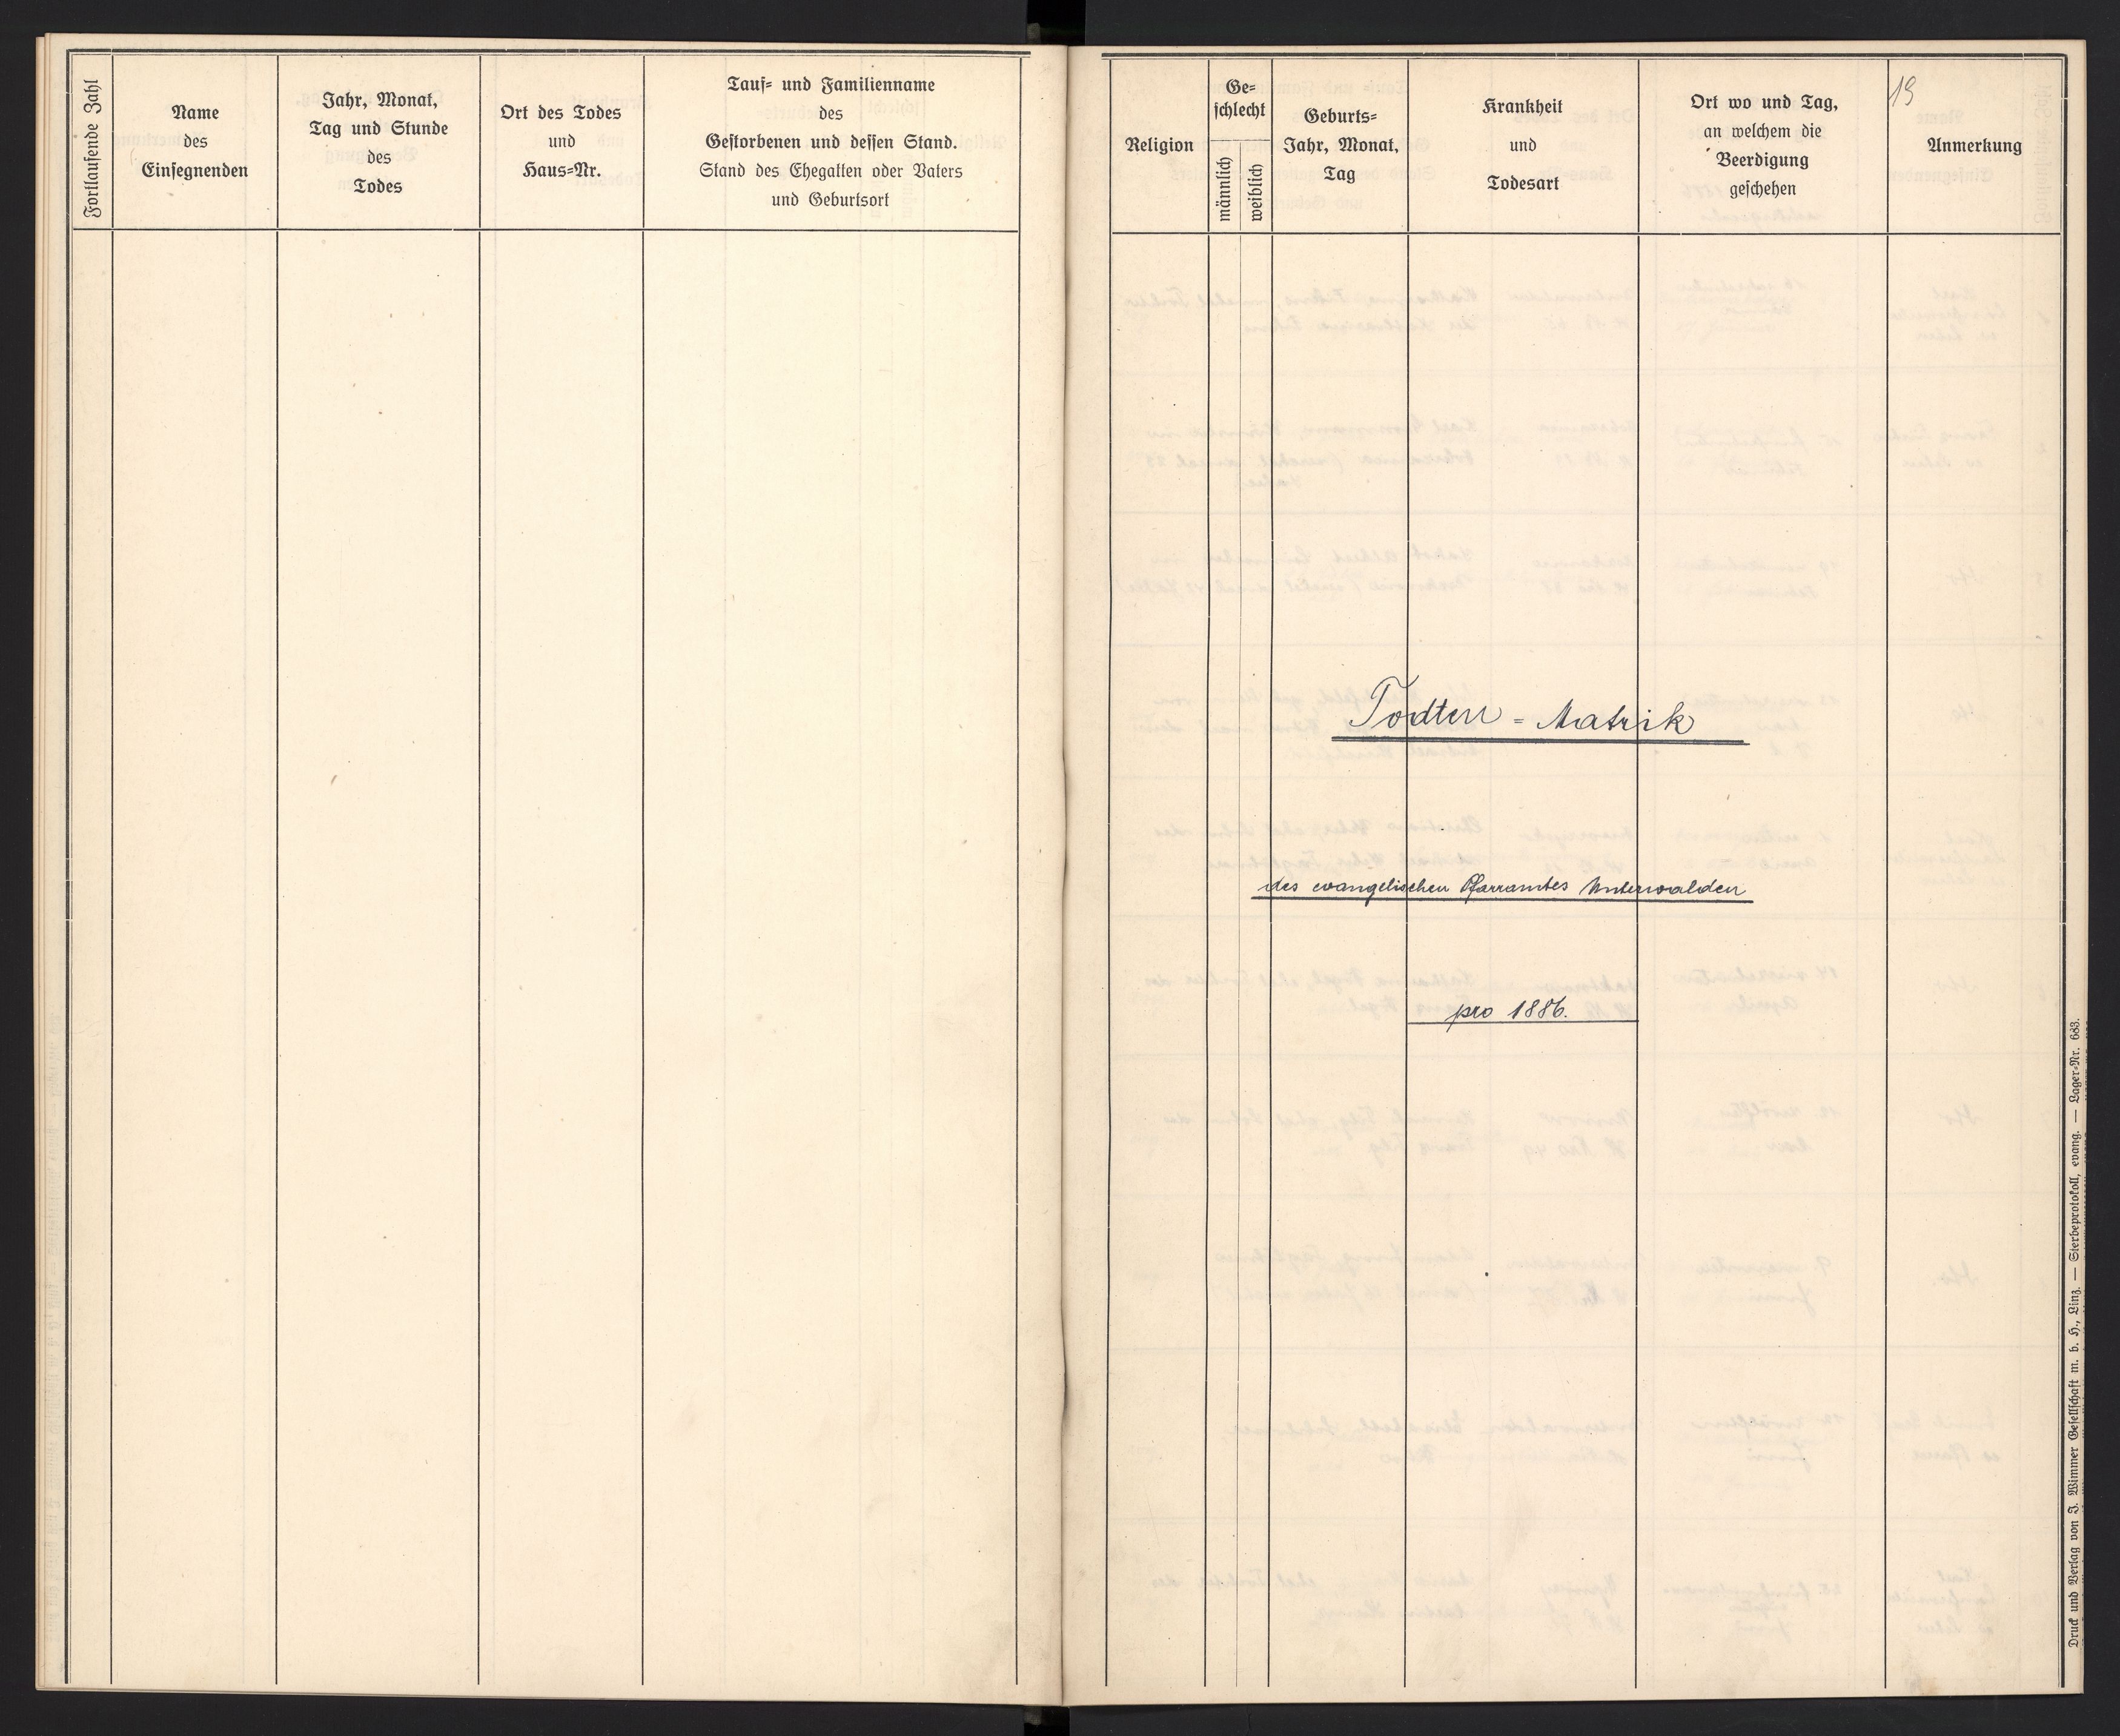 Fortlaufende Zahl
Name
des
Einsegnenden
Jahr, Monat,
Tag und Stunde
des
Todes
Ort des Todes
und
Haus=Nr.
Tauf= und Familienname
des
Gestorbenen und dessen Stand.
Stand des Ehegatten oder Vaters
und Geburtsort
Religion
Ge=
schlecht
männlich
weiblich
Geburts=
Jahr, Monat,
Tag
Krankheit
und
Todesart
Ort wo und Tag,
an welchem die
Beerdigung
geschehen
19
Anmerkung
Todten = Matrik
des evangelischen Pfarramtes Unterwalden
pro 1886.
Druck und Verlag von J. Wimmer Gesellschaft m. b. H., Linz. — Sterbeprotokoll, evang. — Lager=Nr. 683.